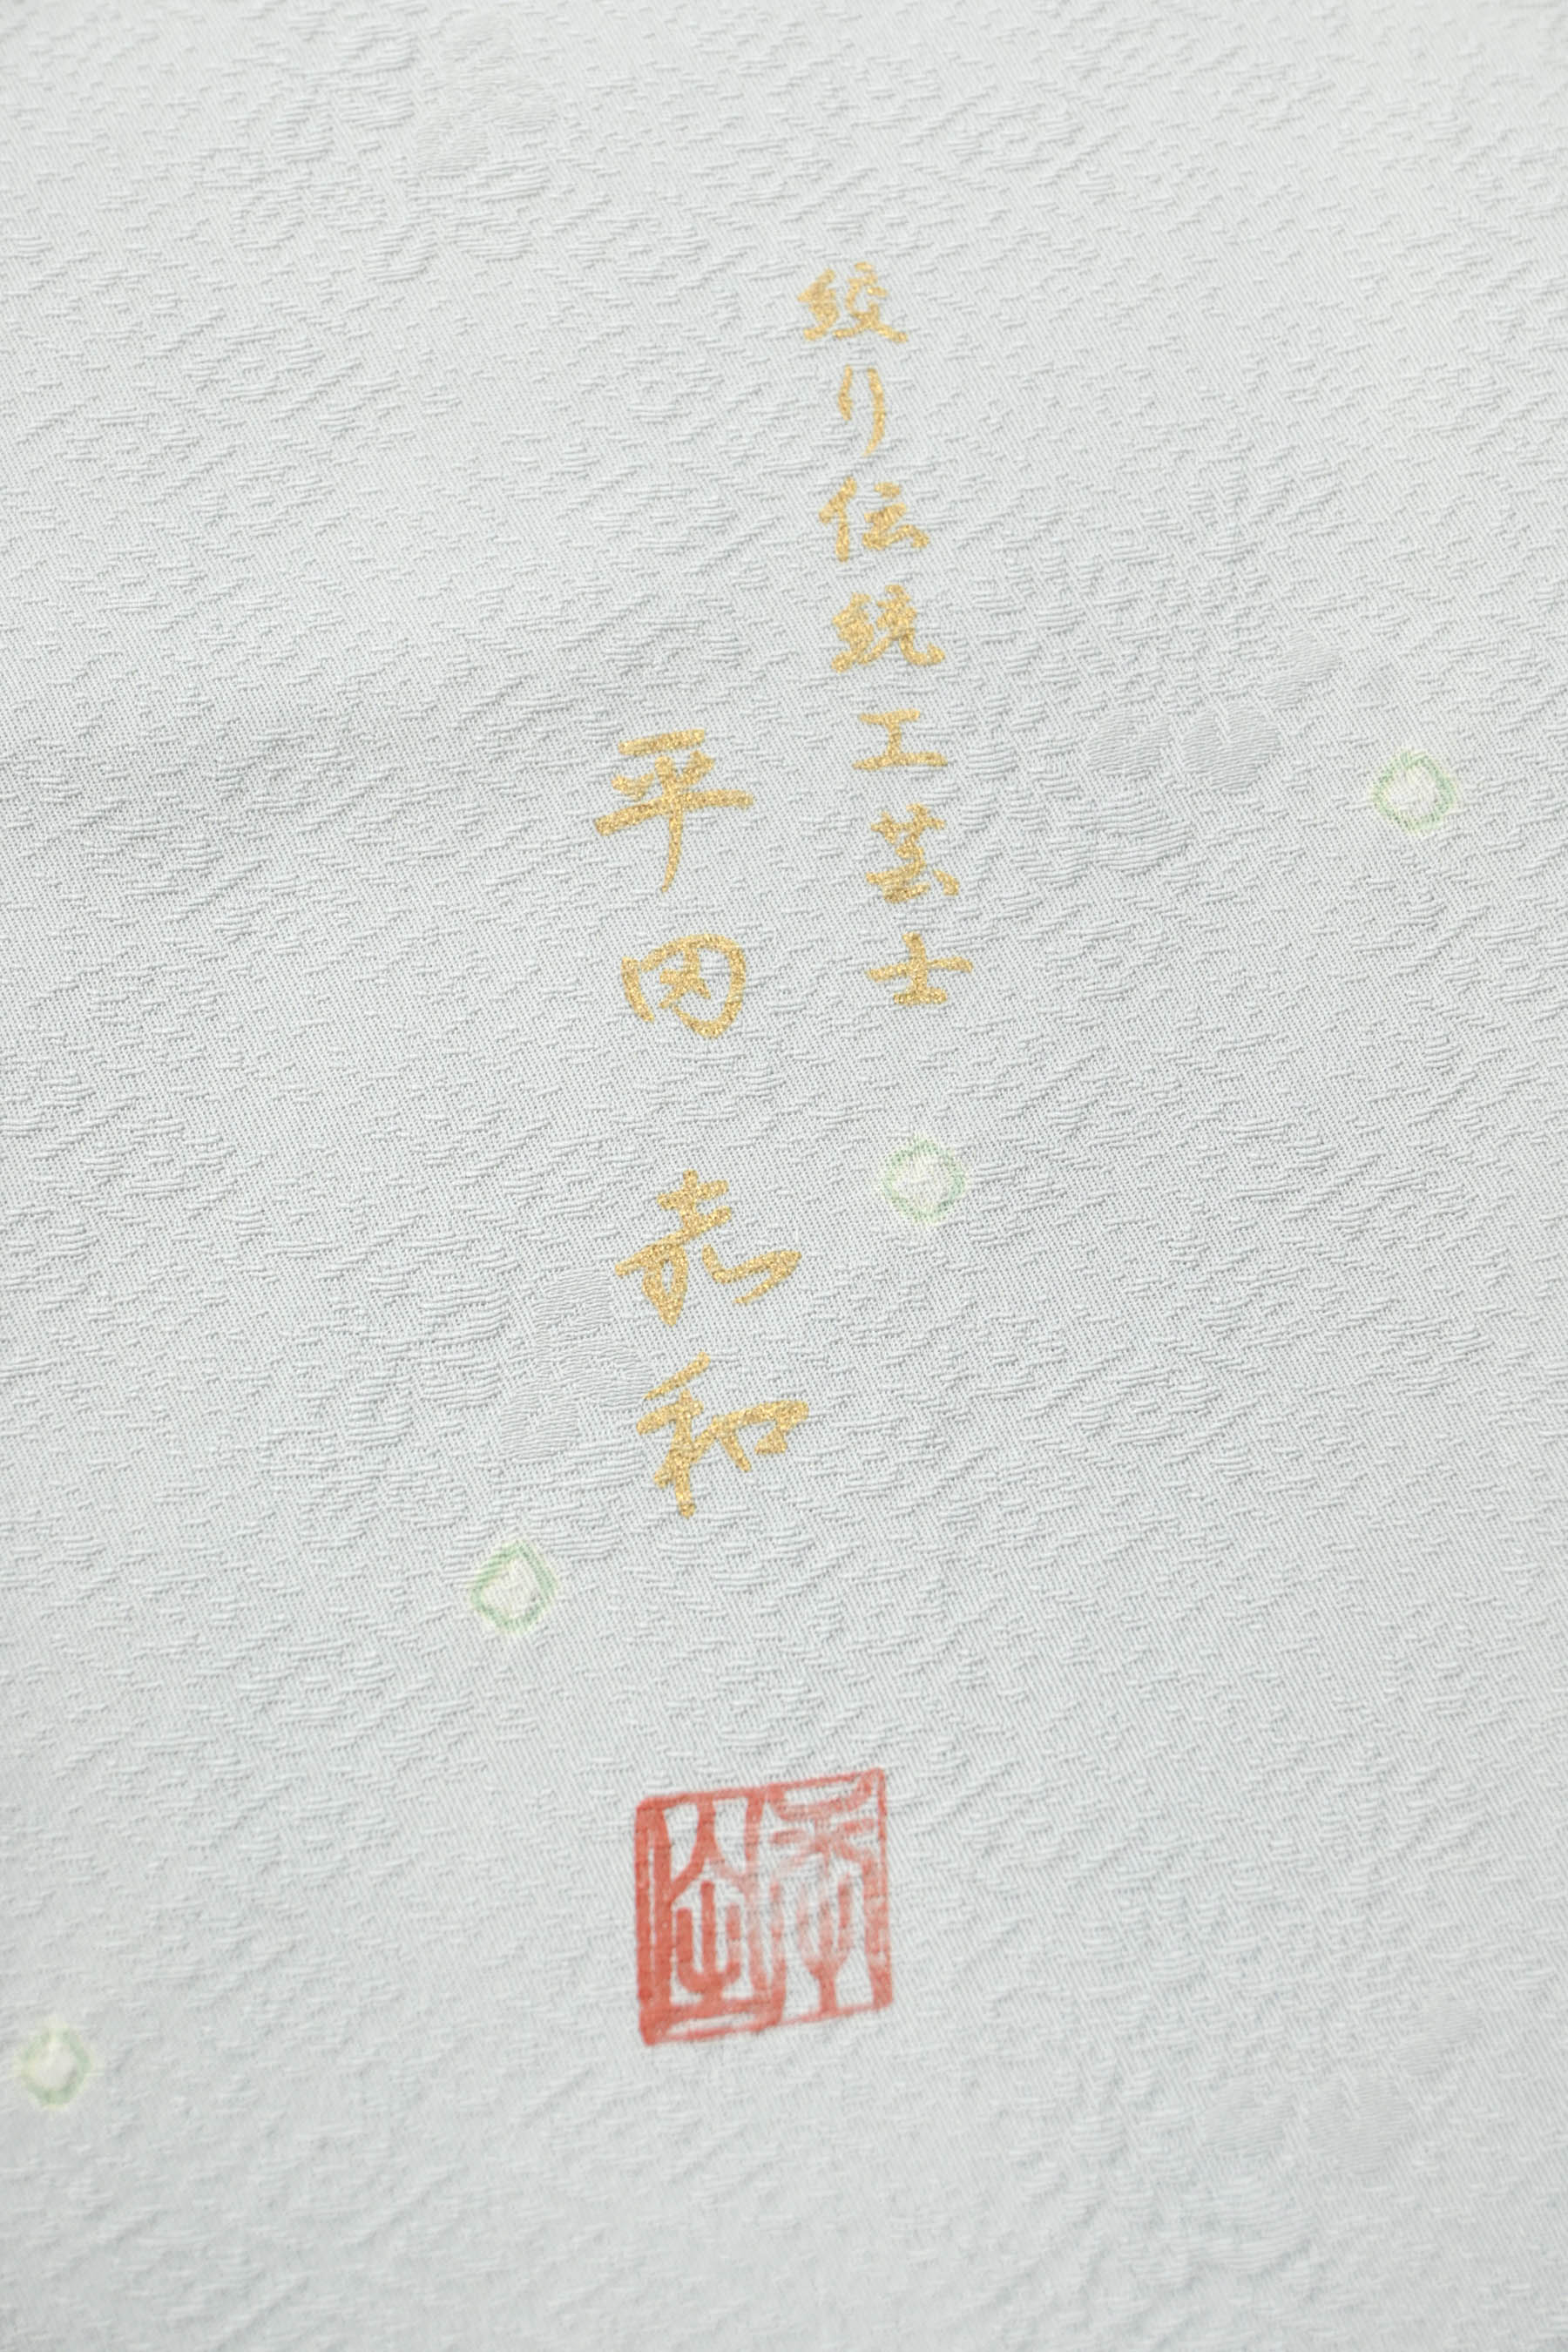 絞り伝統工芸士
平田 嘉和